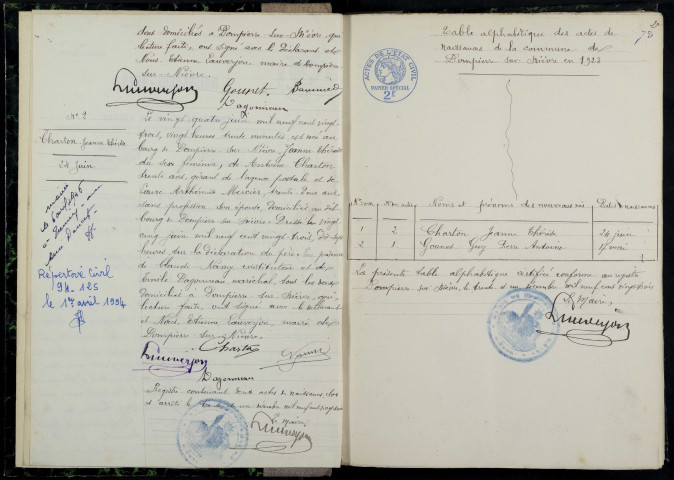 tous domiciliés à Dompierre sur Nièvre, qui
lecture faite, ont signé avec le déclarant et
Nous Etienne Lauverjon maire de Dompierre
sur Nièvre.
Lauverjon Gounot
Dagonneau
N° 2
Charton Jeanne Thérèse
24 Juin
Le vingt quatre juin mil neuf cent vingt
trois, vingt heures trente minutes est née au
bourg de Dompierre sur Nièvre, Jeanne Thérèse
du sexe féminin, de Antoine Charton
trente ans, gérant de l'agence postale et de
Mercier, trente deux ans
sans profession son épouse, domiciliés au dit
bourg de Dompierre sur Nièvre. Dressé le vingt
cinq juin mil neuf cent vingt trois,
heures sur la déclaration du père, en présence
de Claude instituteur et de
Dagonneau maréchal, tous les deux
domiciliés à Dompierre sur Nièvre, qui
lecture faite ont signé avec le déclarant
et Nous, Etienne Lauverjon, maire de
Dompierre sur Nièvre.
Charton
Lauverjon
Dagonneau
Registre contenant deux actes de naissances, clos
et arrêté le trente et un décembre mil neuf cent vingt trois
Le Maire
Lauverjon
Répertoire Civil
94-125
le 1er avril 1994
78
Table alphabétique des actes de
naissances de la commune de
Dompierre sur Nièvre en 1923
ACTES DE L'ETAT CIVIL
PAPIER SPÉCIAL
2F
Noms et prénoms des nouveaux nés
1 2 Charton Jeanne Thérèse 24 juin
2 1 Gounot Guy Pierre Antoine 17 mai
La présente table alphabétique certifiée conforme au registre
Dompierre sur Nièvre, le trente et un décembre mil neuf cent vingt trois
Le Maire,
Lauverjon